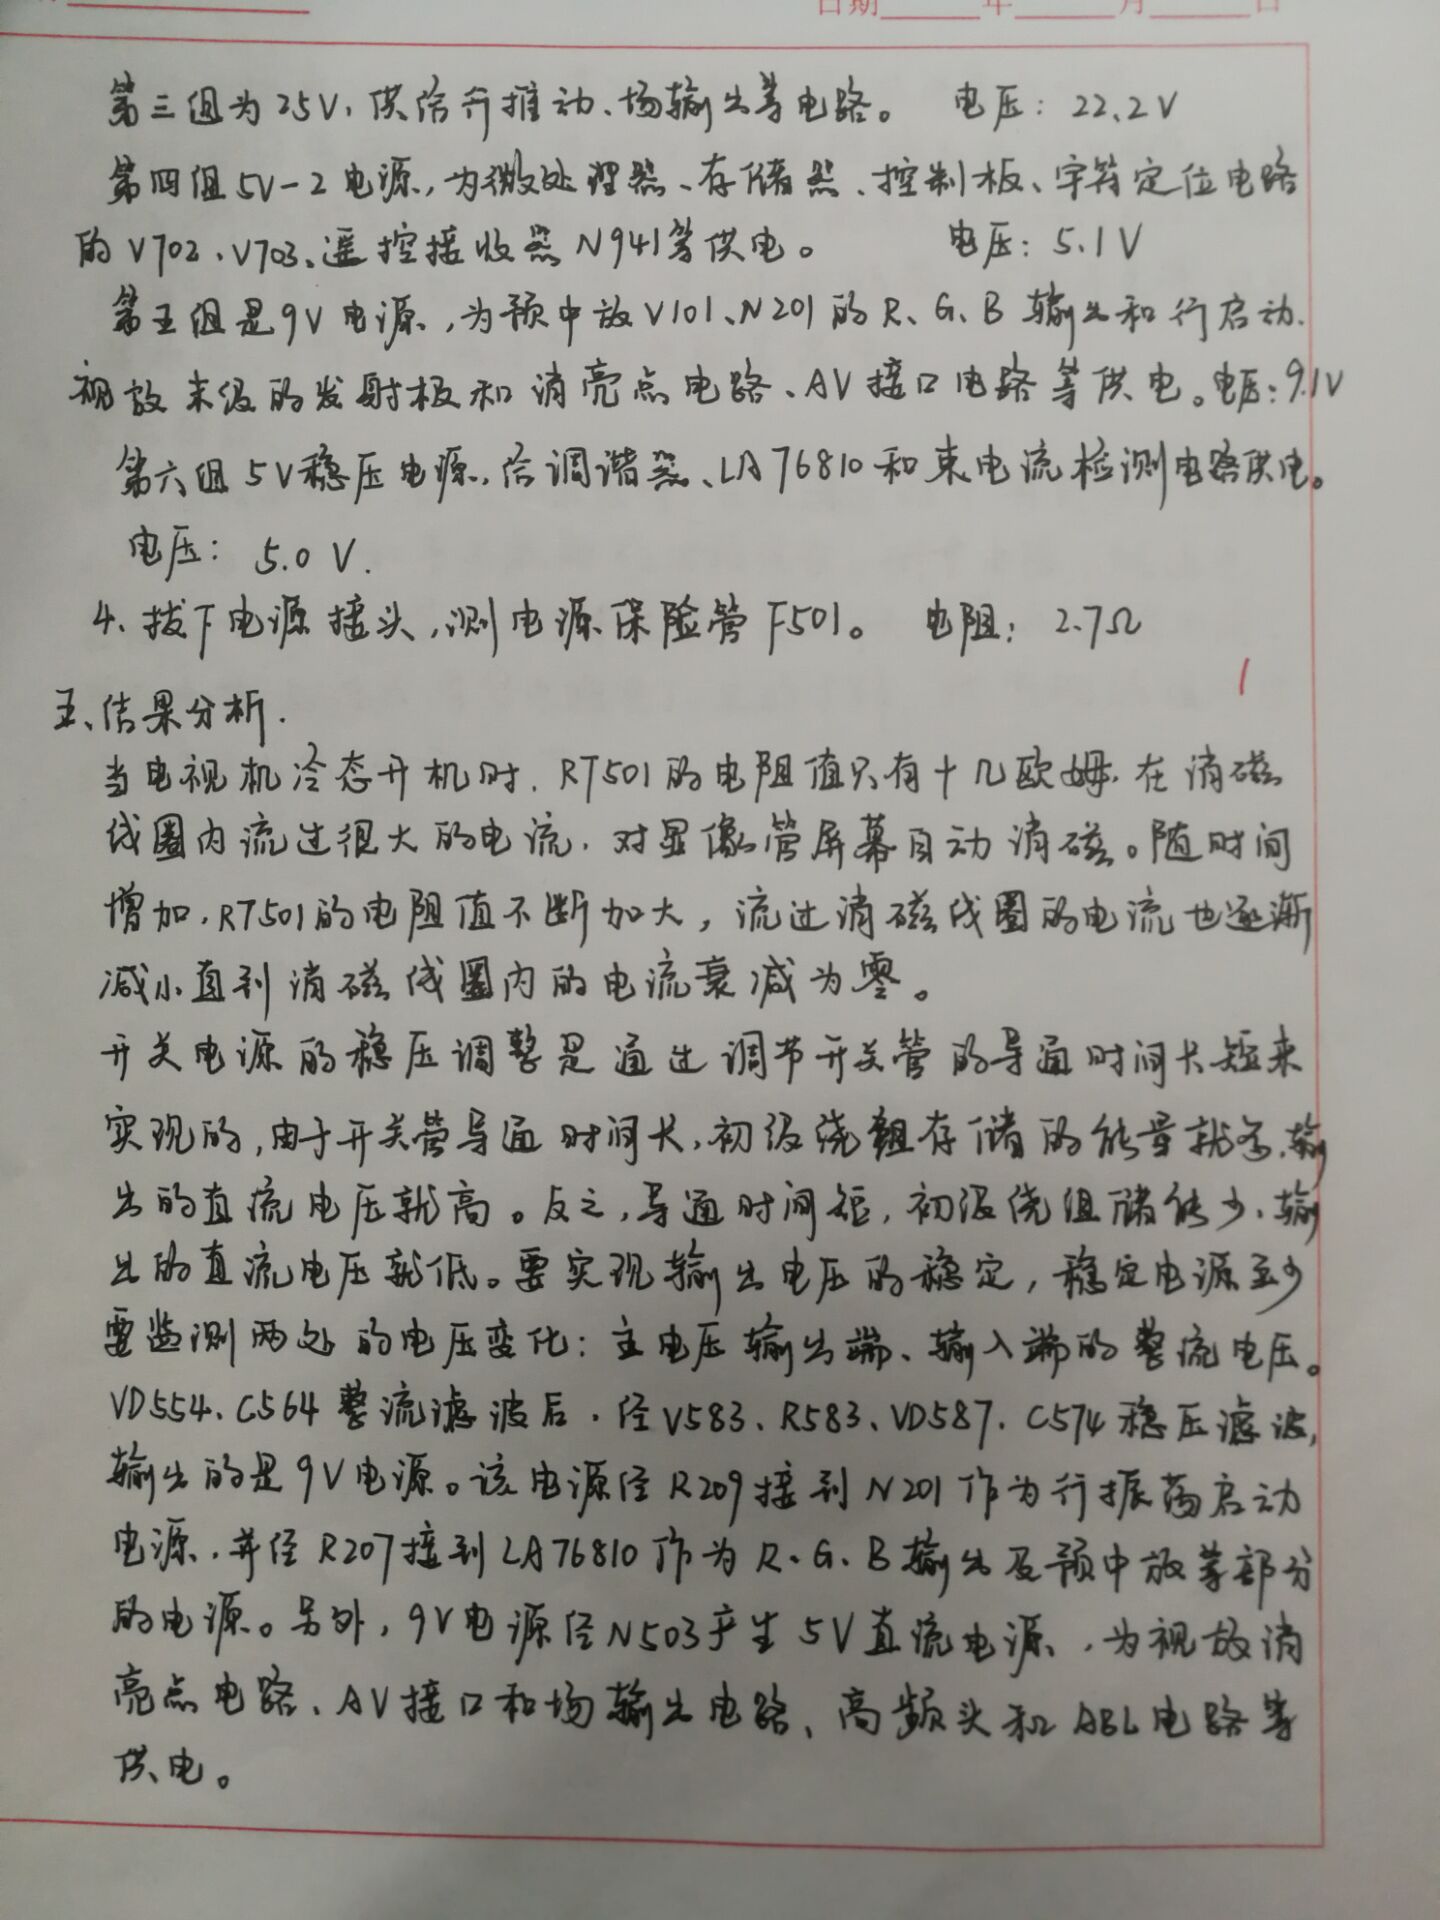 日期 年 月 日
第三组为25V,供给行推动、场输出等电路。 电压: 22.2V
第四组5V-2电源,为微处理器、存储器、控制板、字符定位电路
的V702、V703、遥控接收器N941等供电。 电压: 5.1V
第五组是9V电源,为预中放V101、N201的R、G、B输出和行启动、
视放末级的发射极和消亮点电路、AV接口电路等供电。电压:9.1V
第六组5V稳压电源,给调谐器、LA76810和束电流检测电路供电。
电压: 5.0V.
4、拔下电源接头,测电源保险管F501。 电阻: 2.7Ω
1
五、结果分析.
当电视机冷态开机时,RT501的电阻值只有十几欧姆,在消磁
线圈内流过很大的电流,对显像管屏幕自动消磁。随时间
增加,RT501的电阻值不断加大,流过消磁线圈的电流也逐渐
减小直到消磁线圈内的电流衰减为零。
开关电源的稳压调整是通过调节开关管的导通时间长短来
实现的,由于开关管导通时间长,初级绕组存储的能量就多,输
出的直流电压就高。反之,导通时间短,初级绕组储能少、输
出的直流电压就低。要实现输出电压的稳定,稳定电源至少
要监测两处的电压变化:主电压输出端、输入端的整流电压。
VD554、C564整流滤波后,经V583、R583、VD587、C574稳压滤波,
输出的是9V电源。该电源经R209接到N201作为行振荡启动
电源,并经R207接到LA76810作为R、G、B输出及预中放等部分
的电源。另外,9V电源经N503产生5V直流电源,为视放消
亮点电路、AV接口和场输出电路、高频头和ABL电路等
供电。